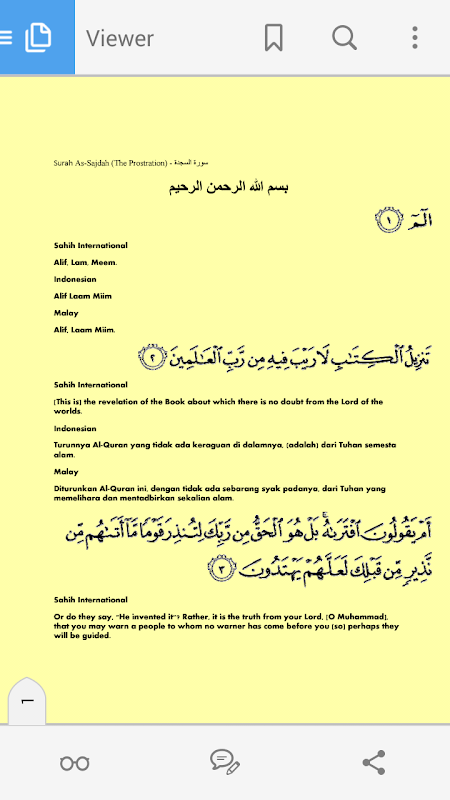 Viewer
Surah As-Sajdah (The Prostration) - سورة السجدة
بسم الله الرحمن الرحيم
الٓمٓ ١
Sahih International
Alif, Lam, Meem.
Indonesian
Alif Laam Miim
Malay
Alif, Laam Miim.
تَنزِيلُ ٱلْكِتَـٰبِ لَا رَيْبَ فِيهِ مِن رَّبِّ ٱلْعَـٰلَمِينَ ٢
Sahih International
[This is] the revelation of the Book about which there is no doubt from the Lord of the
worlds.
Indonesian
Turunnya Al-Quran yang tidak ada keraguan di dalamnya, (adalah) dari Tuhan semesta
alam.
Malay
Diturunkan Al-Quran ini, dengan tidak ada sebarang syak padanya, dari Tuhan yang
memelihara dan mentadbirkan sekalian alam.
أَمْ يَقُولُونَ ٱفْتَرَىٰهُ ۚ بَلْ هُوَ ٱلْحَقُّ مِن رَّبِّكَ لِتُنذِرَ قَوْمًا مَّآ أَتَىٰهُم مِّن
نَّذِيرٍ مِّن قَبْلِكَ لَعَلَّهُمْ يَهْتَدُونَ ٣
Sahih International
Or do they say, "He invented it"? Rather, it is the truth from your Lord, [O Muhammad],
that you may warn a people to whom no warner has come before you [so] perhaps they
will be guided.
1